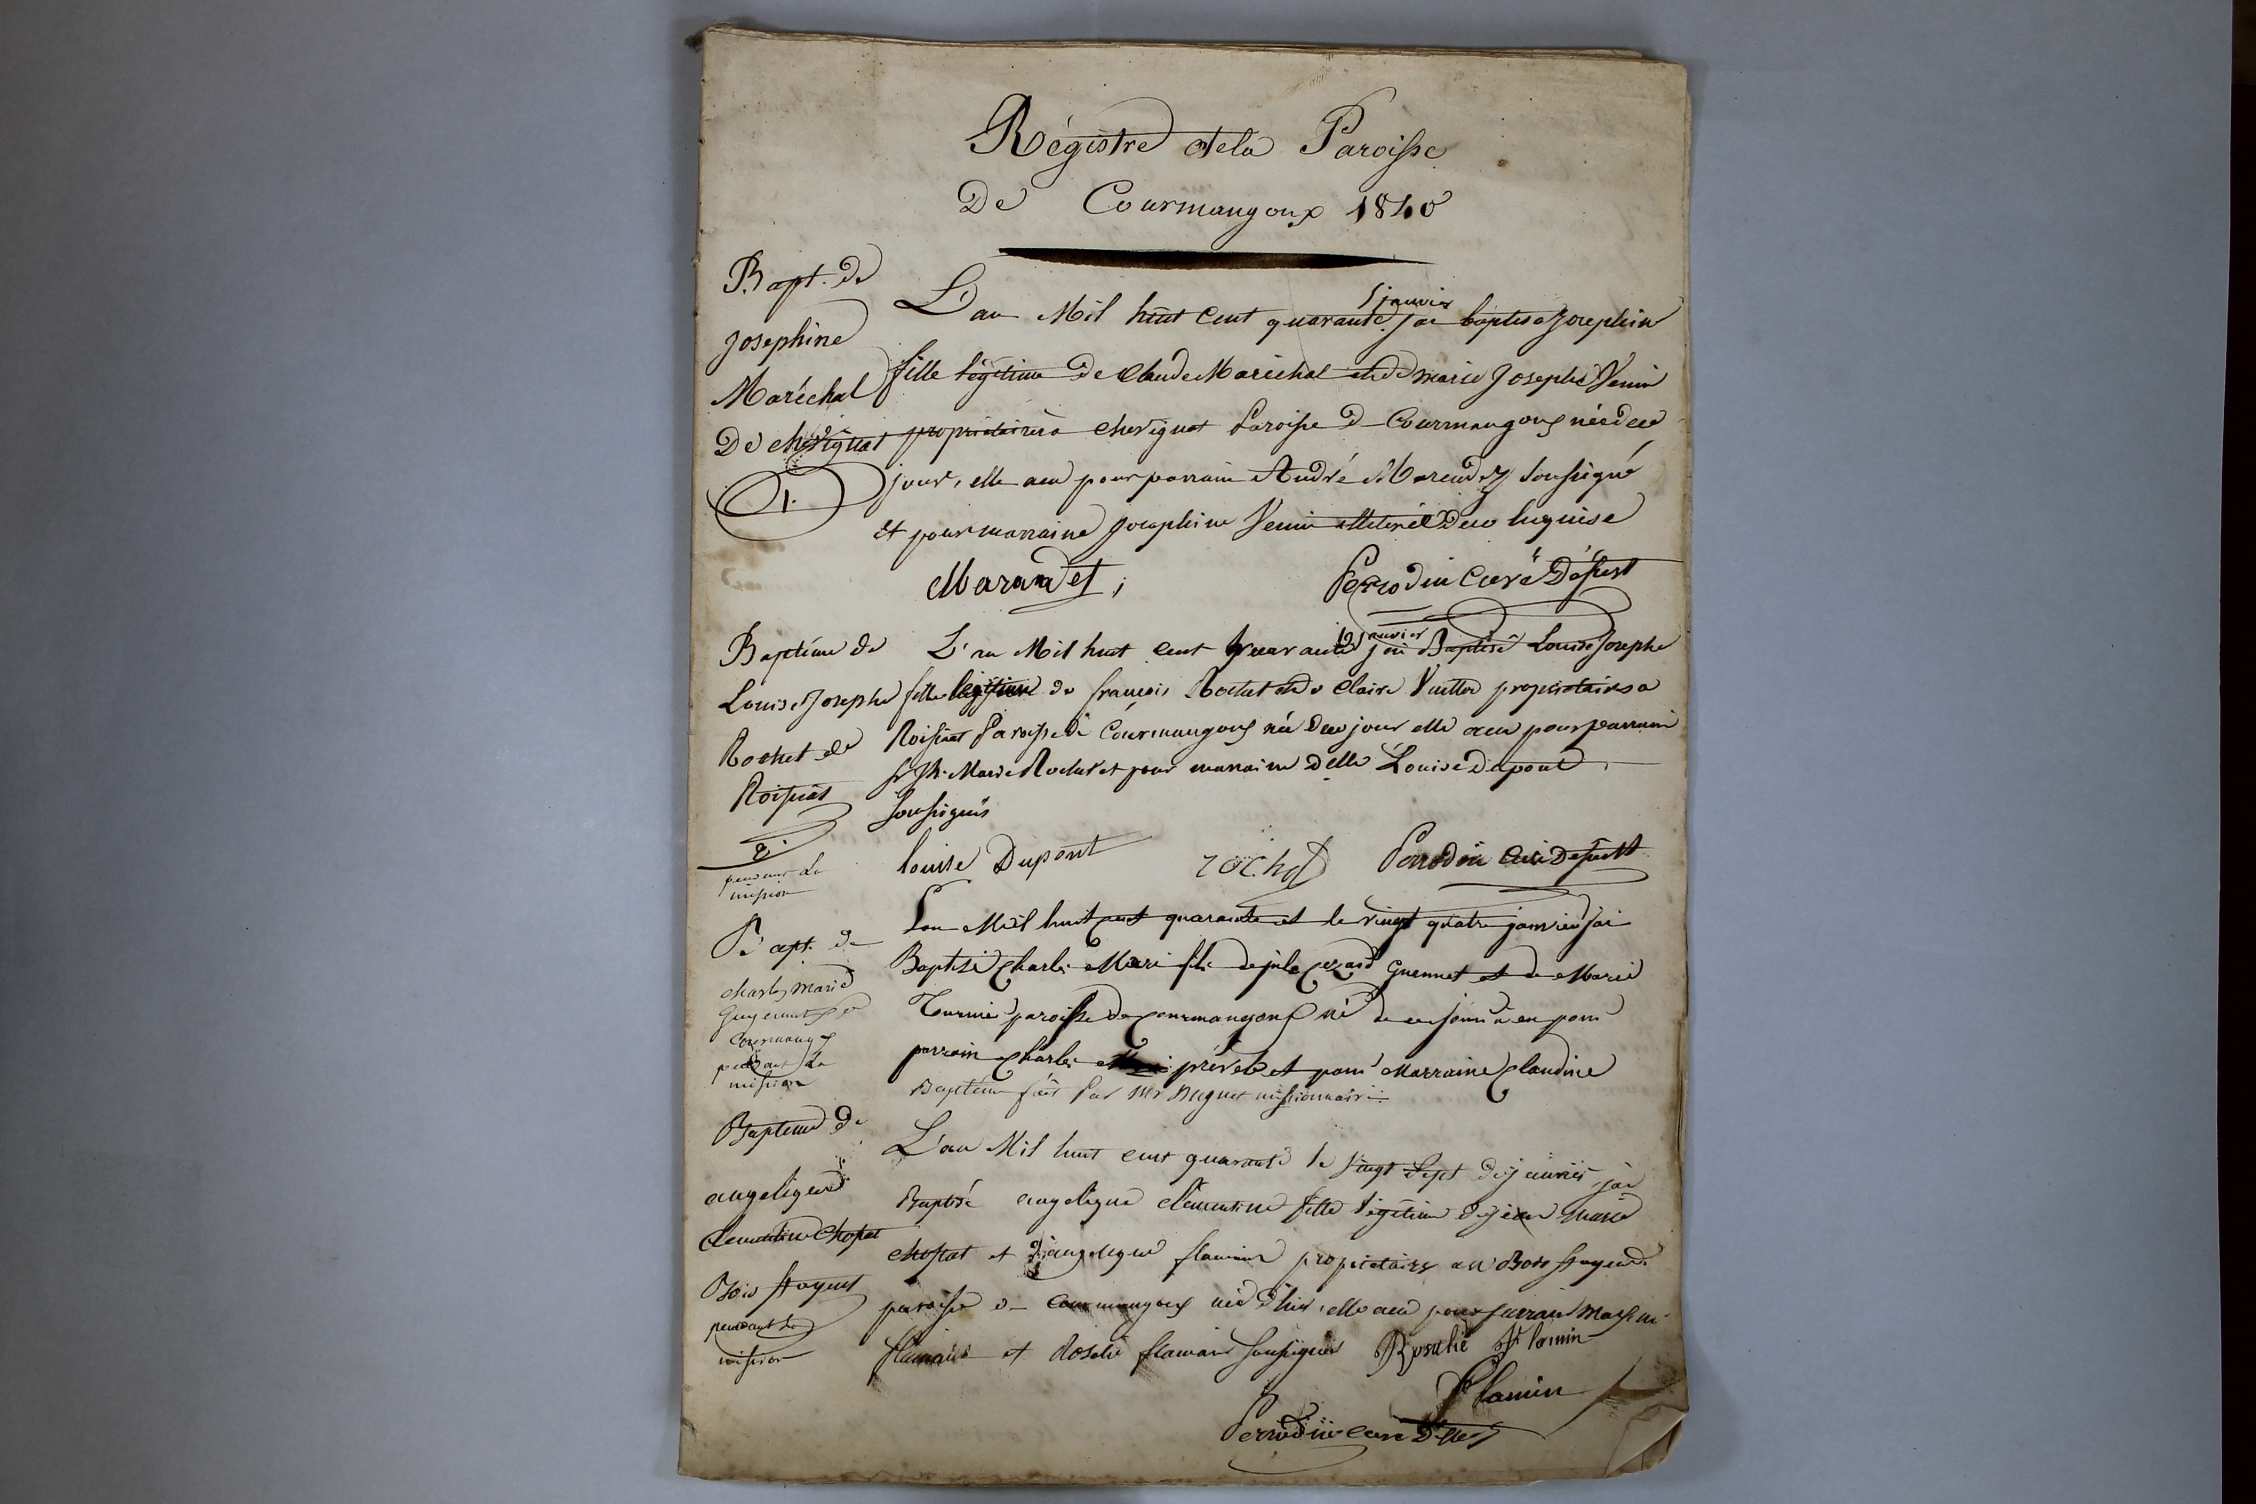 Régistre dela Paroisse
De Courmangoux 1840
Bapt. de
Josephine
Maréchal
De chevignat
1.
L'an Mil huit Cent quarante 5 janvier jai baptisé Josephine
fille légitime de Claude Maréchal et de marie Josephe Venin
propriétaires à chevignat Paroisse de Courmangoux née de ce
jour, elle a eu pour parrain André Marendet soussigné
et pour marraine Josephine Venin
Marandet,
Perrodin Curé
Baptême de
Louise Josephe
Rochet de
Roissiat
2.
pendant la
mission
L'an Mil huit cent quarante 12 janvier jai Baptisé Louise Josephe
fille légitime de françois Rochet et de Claire Vuitton propriétaires a
Roissiat Paroisse de Courmangoux née de ce jour elle a eu pour parrain
Marie Rochet et pour marraine delle Louise Dupont
soussignés
louise Dupont
rochet
Perrodin curé
Bapt. de
charles marie
Guyennet
Courmangoux
pendant la
mission
Lan Mil huit cent quarante et le vingt quatre janvier jai
Baptisé Charles Marie fils de jule Guennet et de Marie
Tournié paroisse de Courmangoux né de ce jour a eu pour
parrain Charles et pour Marraine Claudine
Baptême fait Par Mr missionnaire
Baptême de
angelique
Clementine Chossat
Bois
pendant la
mission
L'an Mil huit cent quarante le vingt Sept de janvier, jai
Baptisé angelique Clementine fille légitime de jean Marie
Chossat et d'angelique flamin propriétaires au Bois
paroisse de Courmangoux née d'hier, elle a eu pour parrain
flamin et Rosalie flamin soussignés Rosalie flamin
Flamin
Perrodin curé